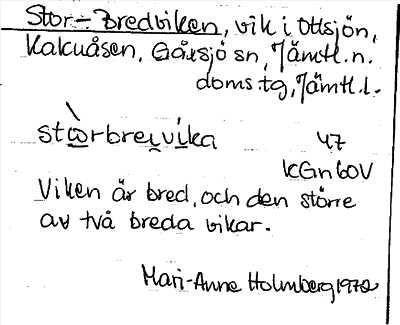 Stor-Bredviken, vik i Ottsjön,
Kalkuåsen, Gåxsjö sn, Jämtl.n.
doms.tg, Jämtl.l.
stωrbreivika 47
KGn60V
Viken är bred, och den större
av två breda vikar.
Mari-Anne Holmberg 1972